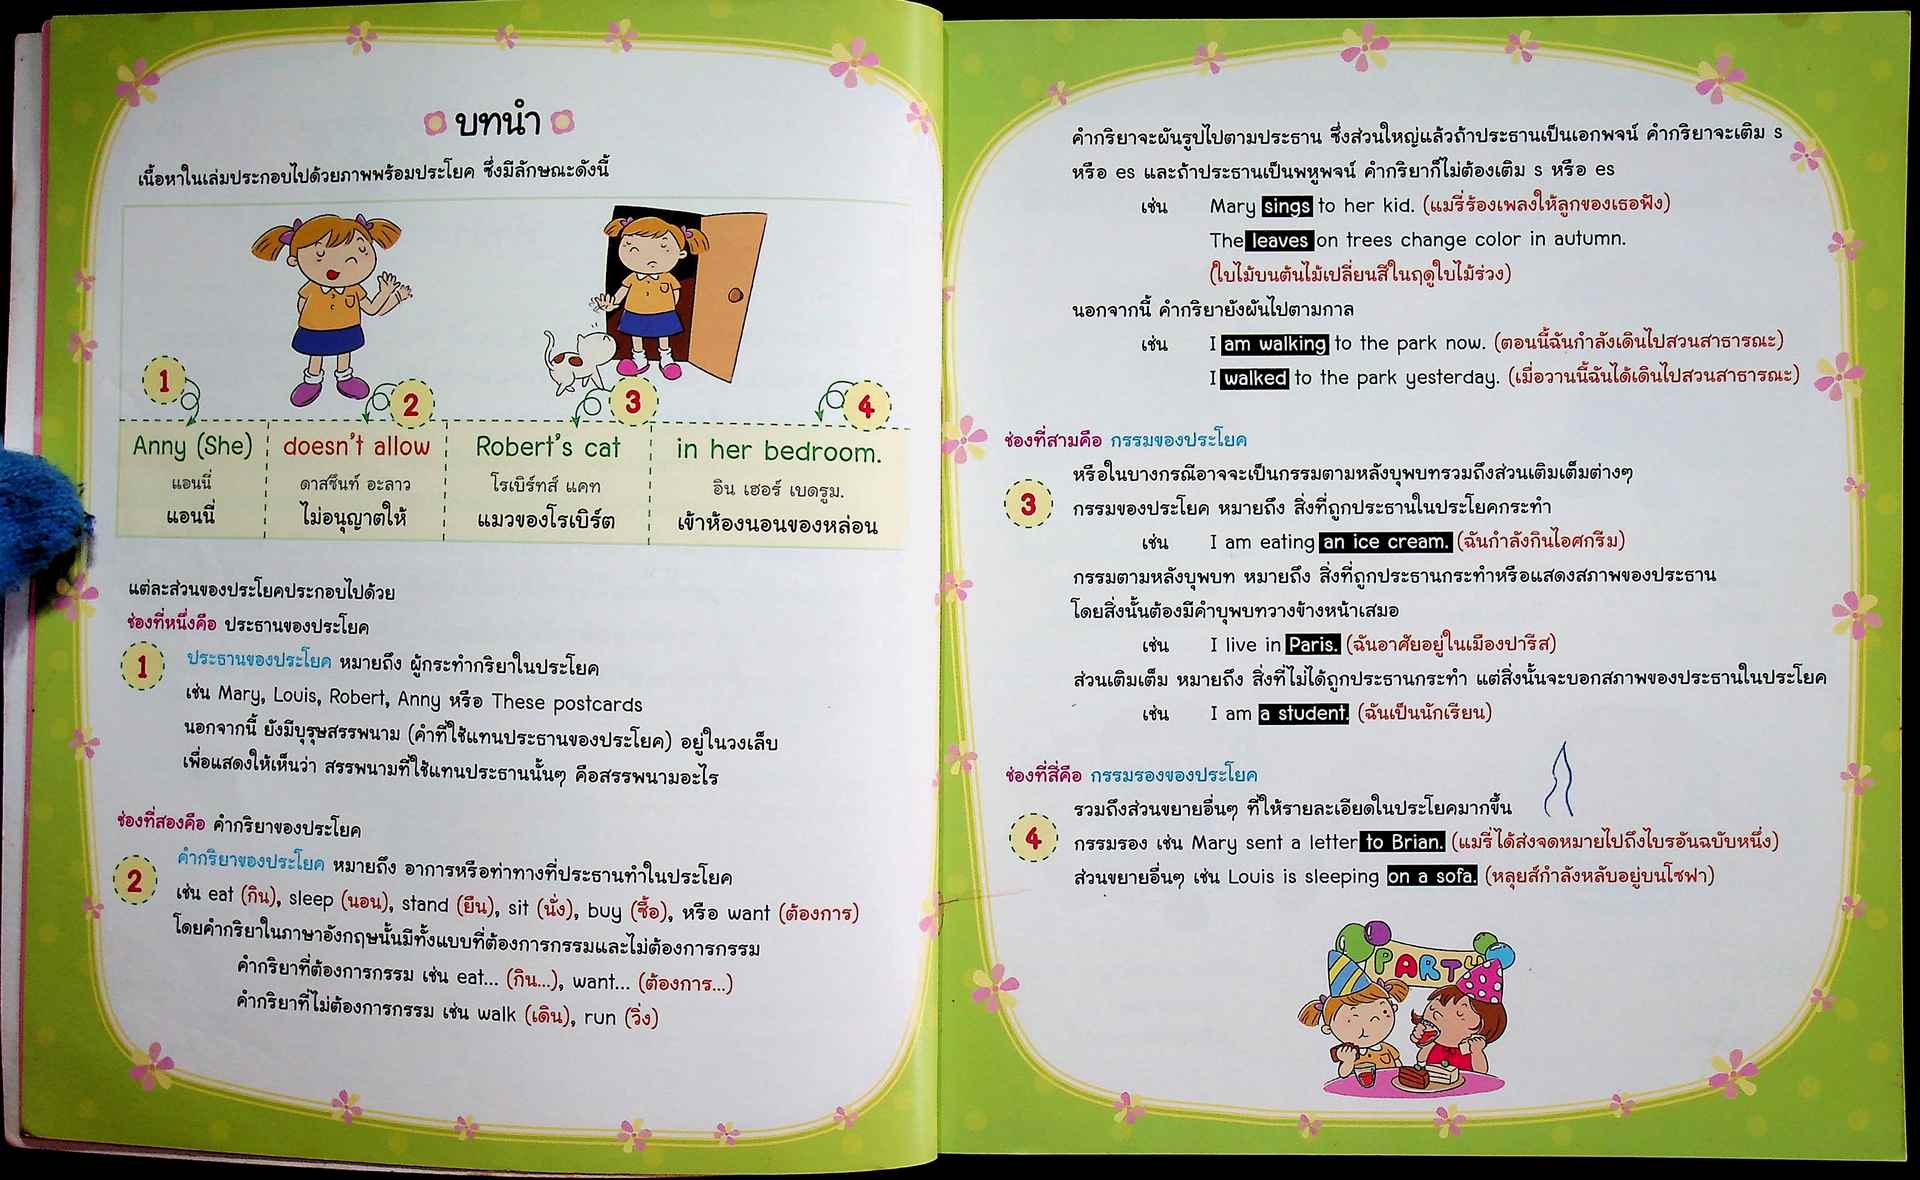 บทนำ
เนื้อหาในเล่มประกอบไปด้วยภาพพร้อมประโยค ซึ่งมีลักษณะดังนี้
1 2 3 4
Anny (She) doesn't allow Robert's cat in her bedroom.
แอนนี่ ดาสซึนท์ อะลาว โรเบิร์ทส์ แคท อิน เฮอร์ เบดรูม.
แอนนี่ ไม่อนุญาตให้ แมวของโรเบิร์ต เข้าห้องนอนของหล่อน
แต่ละส่วนของประโยคประกอบไปด้วย
ช่องที่หนึ่งคือ ประธานของประโยค
1 ประธานของประโยค หมายถึง ผู้กระทำกริยาในประโยค
เช่น Mary, Louis, Robert, Anny หรือ These postcards
นอกจากนี้ ยังมีบุรุษสรรพนาม (คำที่ใช้แทนประธานของประโยค) อยู่ในวงเล็บ
เพื่อแสดงให้เห็นว่า สรรพนามที่ใช้แทนประธานนั้นๆ คือสรรพนามอะไร
ช่องที่สองคือ คำกริยาของประโยค
2 คำกริยาของประโยค หมายถึง อาการหรือท่าทางที่ประธานทำในประโยค
เช่น eat (กิน), sleep (นอน), stand (ยืน), sit (นั่ง), buy (ซื้อ), หรือ want (ต้องการ)
โดยคำกริยาในภาษาอังกฤษนั้นมีทั้งแบบที่ต้องการกรรมและไม่ต้องการกรรม
คำกริยาที่ต้องการกรรม เช่น eat... (กิน...), want... (ต้องการ...)
คำกริยาที่ไม่ต้องการกรรม เช่น walk (เดิน), run (วิ่ง)
คำกริยาจะผันรูปไปตามประธาน ซึ่งส่วนใหญ่แล้วถ้าประธานเป็นเอกพจน์ คำกริยาจะเติม s
หรือ es และถ้าประธานเป็นพหูพจน์ คำกริยาก็ไม่ต้องเติม s หรือ es
เช่น Mary sings to her kid. (แมรี่ร้องเพลงให้ลูกของเธอฟัง)
The leaves on trees change color in autumn.
(ใบไม้บนต้นไม้เปลี่ยนสีในฤดูใบไม้ร่วง)
นอกจากนี้ คำกริยายังผันไปตามกาล
เช่น I am walking to the park now. (ตอนนี้ฉันกำลังเดินไปสวนสาธารณะ)
I walked to the park yesterday. (เมื่อวานนี้ฉันได้เดินไปสวนสาธารณะ)
ช่องที่สามคือ กรรมของประโยค
หรือในบางกรณีอาจจะเป็นกรรมตามหลังบุพบทรวมถึงส่วนเติมเต็มต่างๆ
3 กรรมของประโยค หมายถึง สิ่งที่ถูกประธานในประโยคกระทำ
เช่น I am eating an ice cream. (ฉันกำลังกินไอศกรีม)
กรรมตามหลังบุพบท หมายถึง สิ่งที่ถูกประธานกระทำหรือแสดงสภาพของประธาน
โดยสิ่งนั้นต้องมีคำบุพบทวางข้างหน้าเสมอ
เช่น I live in Paris. (ฉันอาศัยอยู่ในเมืองปารีส)
ส่วนเติมเต็ม หมายถึง สิ่งที่ไม่ได้ถูกประธานกระทำ แต่สิ่งนั้นจะบอกสภาพของประธานในประโยค
เช่น I am a student. (ฉันเป็นนักเรียน)
ช่องที่สี่คือ กรรมรองของประโยค
รวมถึงส่วนขยายอื่นๆ ที่ให้รายละเอียดในประโยคมากขึ้น
4 กรรมรอง เช่น Mary sent a letter to Brian. (แมรี่ได้ส่งจดหมายไปถึงไบรอันฉบับหนึ่ง)
ส่วนขยายอื่นๆ เช่น Louis is sleeping on a sofa. (หลุยส์กำลังหลับอยู่บนโซฟา)
PARTY